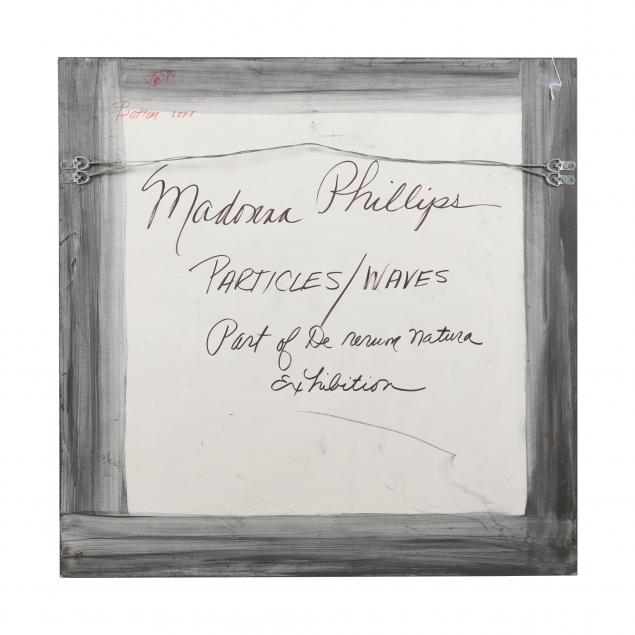 Bottom LEFT
Madonna Phillips
PARTICLES/WAVES
Part of De rerum natura
Exhibition